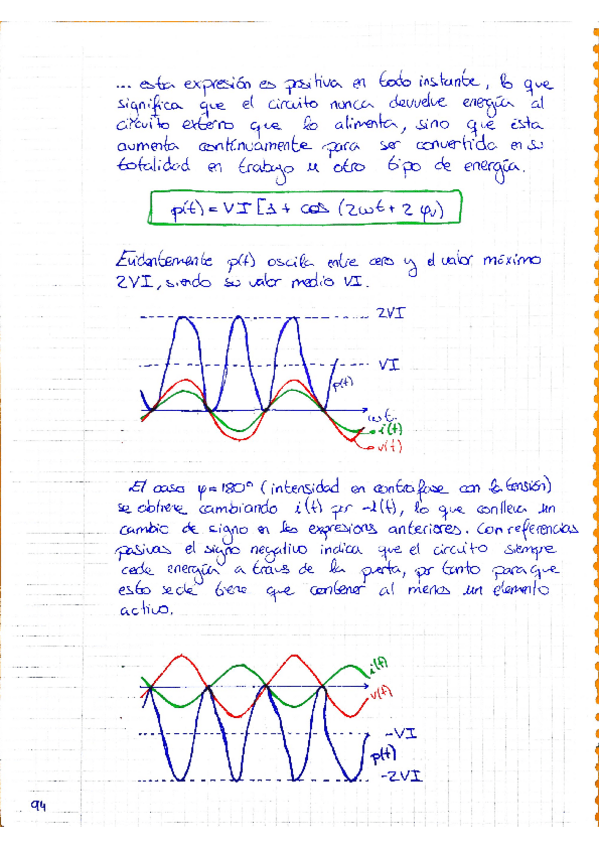 ... esta expresión es positiva en todo instante, lo que
significa que el circuito nunca devuelve energía al
circuito externo que lo alimenta, sino que ésta
aumenta continuamente para ser convertida en su
totalidad en trabajo u otro tipo de energía.
p(t) = VI [1 + cos (2ωt + 2 φv)
Evidentemente p(t) oscila entre cero y el valor máximo
2VI, siendo su valor medio VI.
2VI
VI
p(t)
ωt
i(t)
v(t)
El caso φ=180° (intensidad en contrafase con la tensión)
se obtiene cambiando i(t) por -i(t), lo que conlleva un
cambio de signo en las expresiones anteriores. Con referencias
pasivas el signo negativo indica que el circuito siempre
cede energía a través de la puerta, por tanto para que
esto se dé tiene que contener al menos un elemento
activo.
i(t)
v(t)
-VI
p(t)
-2VI
94